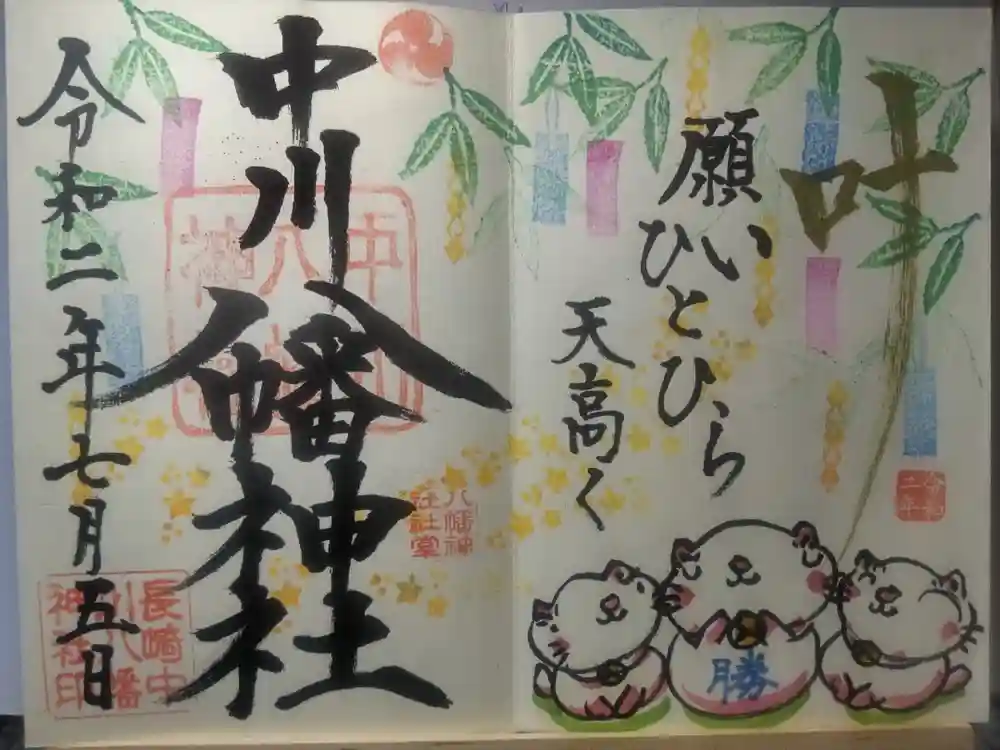 叶
願い
ひとひら
天高く
勝
令和
二年
中川八幡神社
令和二年七月五日
八幡神
社社堂
長崎中
川八幡
神社印